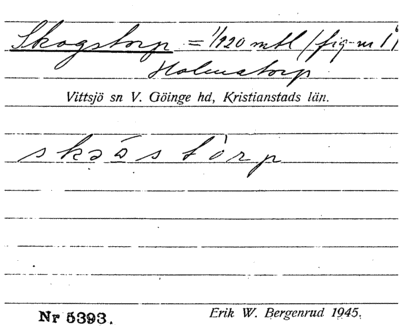 Skogstorp = 1/920 mtl (fig-nr 1) i
Holmatorp
Vittsjö sn V. Göinge hd, Kristianstads län.
skɔ̄stòrp
Nr 5393. Erik W. Bergenrud 1945.